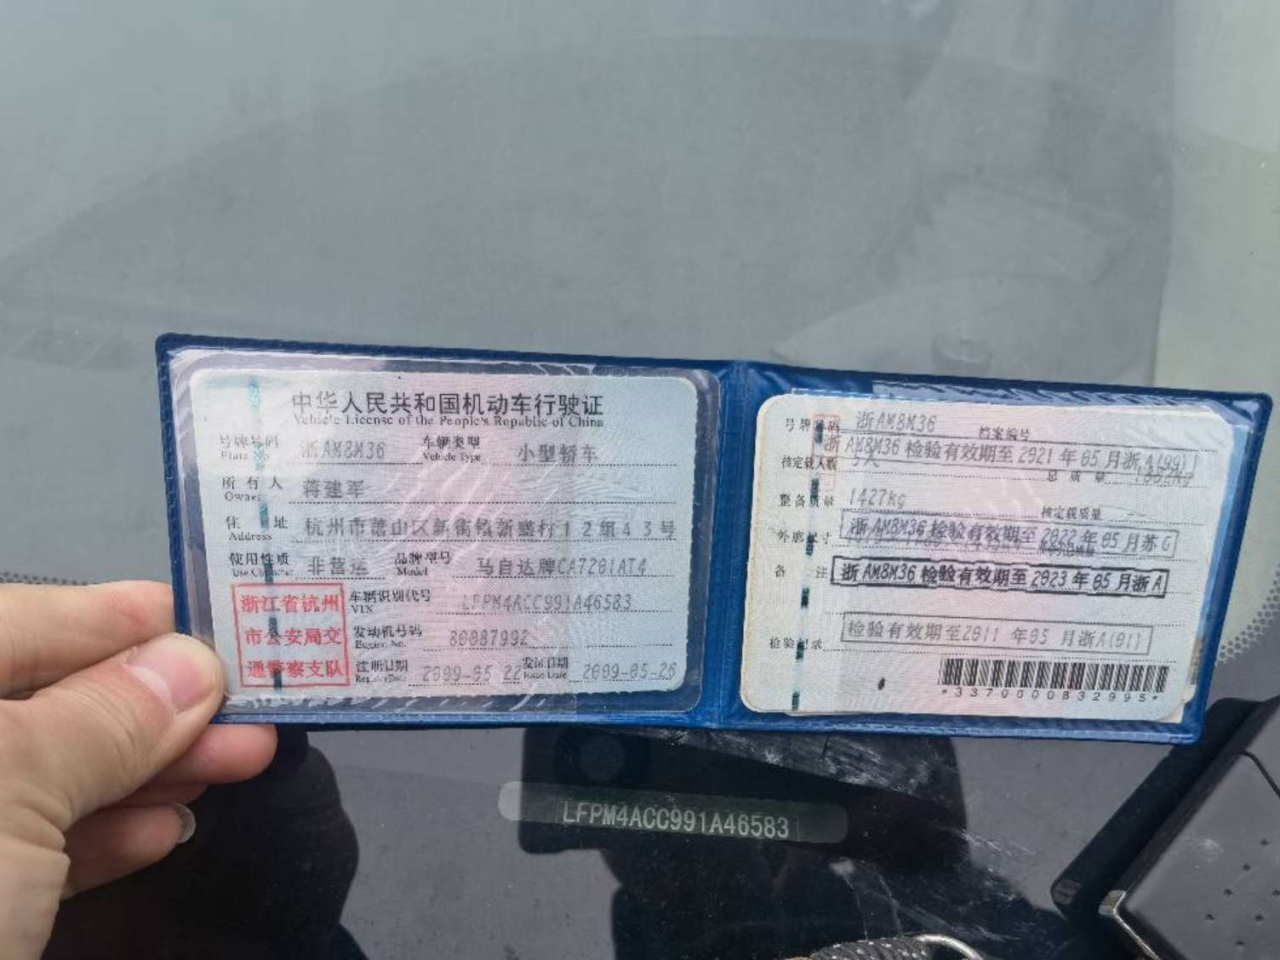 中华人民共和国机动车行驶证
Vehicle License of the People's Republic of China
号牌号码 浙AM8M36 车辆类型 小型轿车
Plate No. Vehicle Type
所有人 蒋建军
Owner
住址 杭州市萧山区新街镇新盛村12组43号
Address
使用性质 非营运 品牌型号 马自达牌CA7201AT4
Use Character Model
浙江省杭州
市公安局交
通警察支队
车辆识别代号 LFPM4ACC991A46583
VIN
发动机号码 80087992
Engine No.
注册日期 2009-05 22 发证日期 2009-05-26
Register Date Issue Date
号牌号码 浙AM8M36 档案编号
浙AM8M36 检验有效期至2021年05月浙A(99)
核定载人数 5人 总质量
整备质量 1427kg 核定载质量 --
外廓尺寸 浙AM8M36 检验有效期至2022年05月苏G
备注 浙AM8M36 检验有效期至2023年05月浙A
检验记录 检验有效期至2011年05月浙A(01)
*3370000832995*
LFPM4ACC991A46583